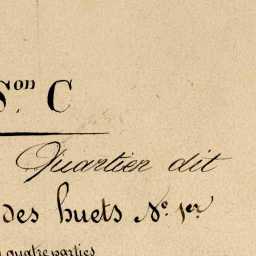 Son C
Quartier dit
des huets No. 1er.
quatre parties